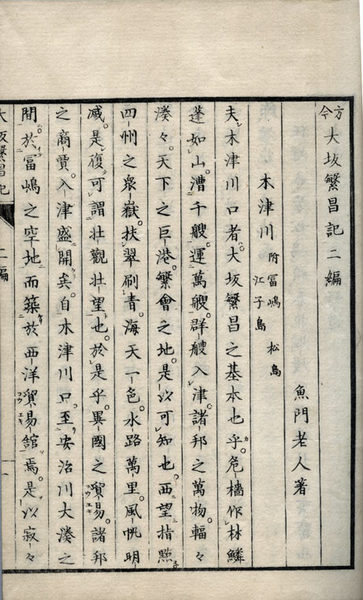 方今大坂繁昌記二編
魚門老人著
木津川 附冨嶋 松島
江子島
夫木津川口者。大坂繁昌之基本也乎。危檣作林鱗
蓬如山漕千艘運萬艘群艘入津諸邦之萬物輻々
湊々。天下之巨港繁會之地是以可知也。西望指點
四州之衆嶽扶翠刷青海天一色。水路萬里。風帆明
滅。是復可謂壮觀壮望也。於是乎異國之貿易。諸邦
之商賈。入津盛開矣自木津川口。至安治川大湊之
間。於冨嶋之空地而築於西洋貿易館焉。是以寂々
大坂繁昌記 二編